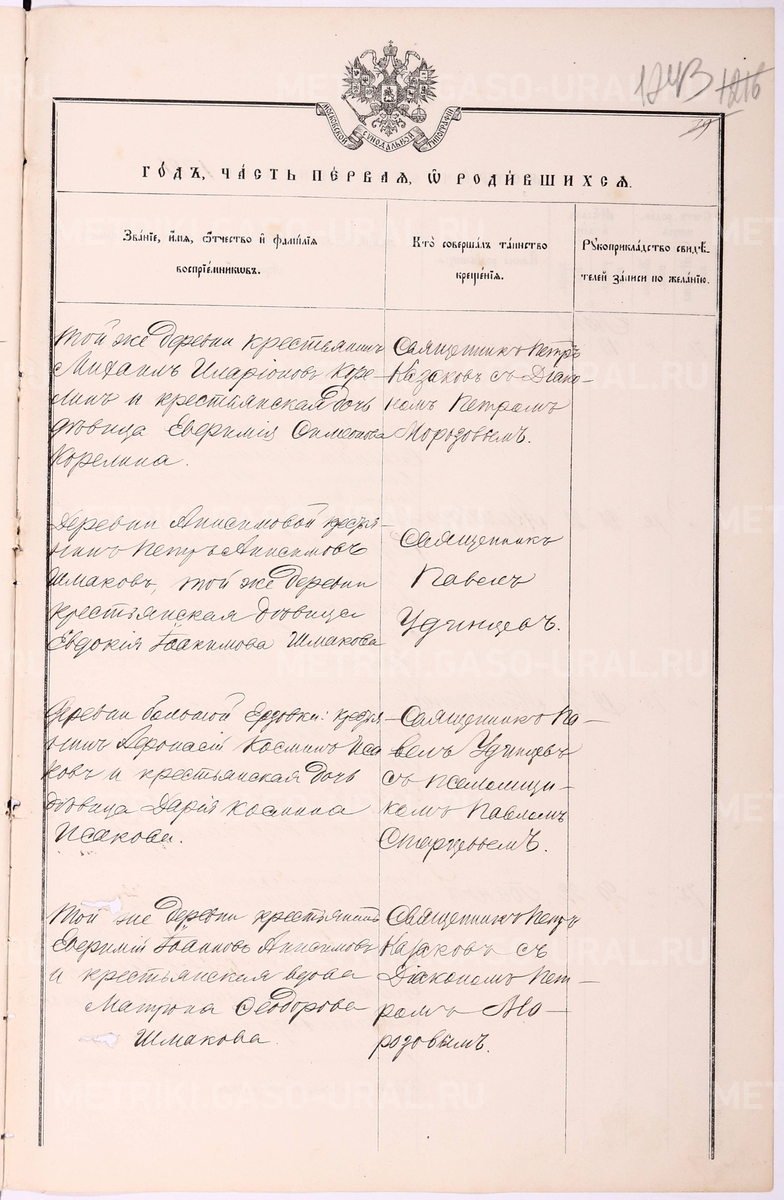 1243 1216
МОСКОВСКОЙ СѴНОДАЛЬНОЙ ТИПОГРАФІИ
ГО́ДЪ, ЧА́СТЬ ПЕ́РВАЯ, Ѡ҆ РОДИ́ВШИХСЯ.
Зва́нїе, и҆́мя, ѻ҆́тчество и҆ фами́лїя
воспрїе́мникѡвъ.
Кто̀ соверша́лъ та́инство
креще́нїя.
Рꙋкоприкла́дство свидѣ́-
телей за́писи по жела́нїю.
Той же деревни крестьянинъ
Михаилъ Иларіоновъ Коре-
линъ и крестьянская дочь
дѣвица Евѳимія Симеонова
Корелина.
Священникъ Петръ
Казаковъ съ Діако-
номъ Петромъ
Мородовымъ.
Деревни Анисимовой крестья-
нинъ Петръ Анисимовъ
Шмаковъ, той же деревни
крестьянская дѣвица
Евдокія Іоакимова Шмакова
Священникъ
Павелъ
Удинцевъ.
Деревни большой Ерзовки: крестья-
нинъ Аѳонасій Косминъ Иса
ковъ и крестьянская дочь
дѣвица Дарія Космина
Исакова.
Священникъ Па-
велъ Удинцевъ
съ псаломщи-
комъ Павломъ
Старцевымъ.
Той же деревни крестьянинъ
Евѳимій Іоанновъ Анисимовъ
и крестьянская вдова
Матрона Ѳеодорова
Шмакова.
Священникъ Петръ
Казаковъ съ
Діакономъ Пет-
ромъ Мо-
родовымъ.
METRIKI.GASO-URAL.RU